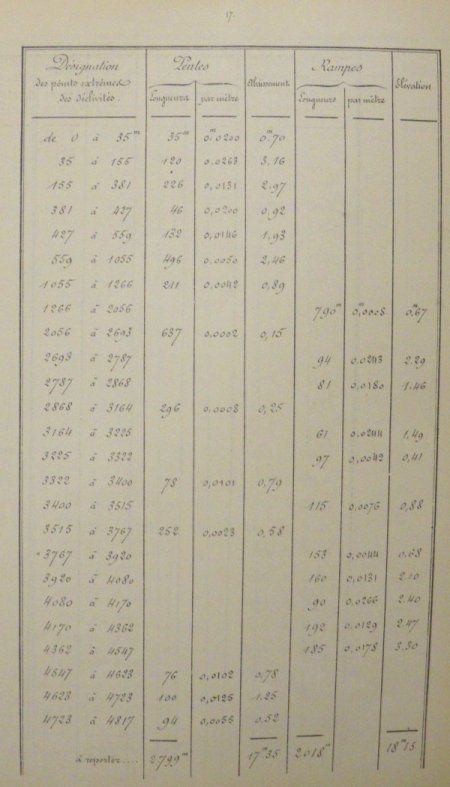 9.
Désignation des points extrêmes des déclivités. Pentes Longueurs par mètre Abaissement Rampes Longueurs par mètre Élévation
de 0 à 35ᵐ 35ᵐ 0ᵐ0200 0ᵐ70
35 à 155 120 0.0263 3,16
155 à 381 226 0,0131 2.97
381 à 427 46 0,0200 0.92
427 à 559 132 0,0146 1.93
559 à 1055 496 0.0050 2,46
1055 à 1266 211 0,0042 0,89
1266 à 2056 790ᵐ 0ᵐ0008 0ᵐ67
2056 à 2693 637 0.0002 0,15
2693 à 2787 94 0.0243 2.29
2787 à 2868 81 0.0180 1.46
2868 à 3164 296 0.0008 0,25
3164 à 3225 61 0.0244 1,49
3225 à 3322 97 0,0042 0,41
3322 à 3400 78 0,0101 0,79
3400 à 3515 115 0.0076 0,88
3515 à 3767 252 0,0023 0,58
3767 à 3920 153 0,0044 0,68
3920 à 4080 160 0,0131 2.10
4080 à 4170 90 0.0266 2.40
4170 à 4362 192 0.0129 2.47
4362 à 4547 185 0.0178 3.30
4547 à 4623 76 0,0102 0,78
4623 à 4723 100 0,0125 1.25
4723 à 4817 94 0,0055 0.52
à reporter.... 2799ᵐ 17ᵐ35 2018ᵐ 18ᵐ15